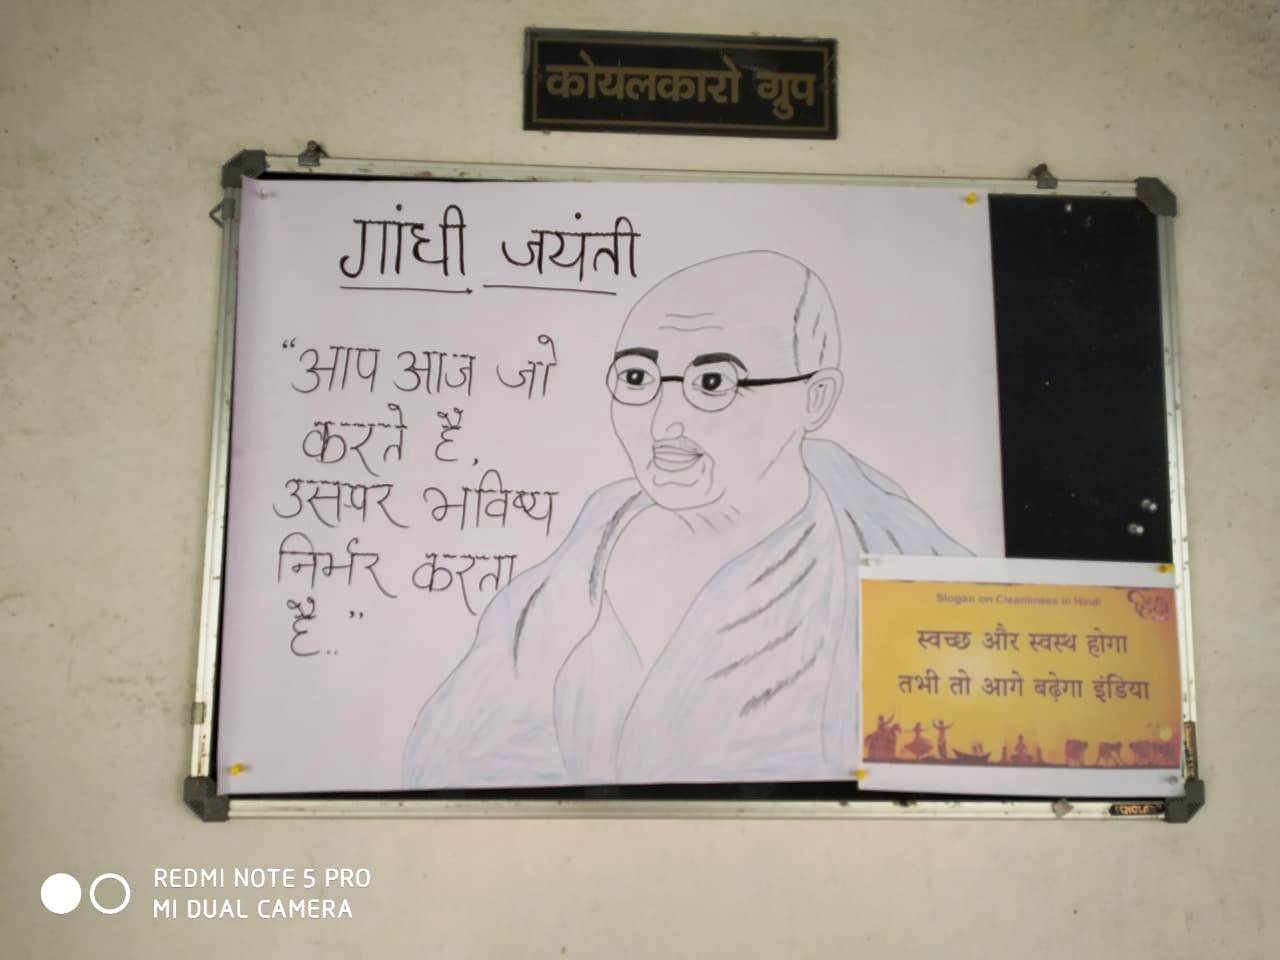 कोयलकारो ग्रुप
गांधी जयंती
“आप आज जो
करते है,
उसपर भविष्य
निर्भर करता
है..”
Slogan on Cleanliness in Hindi
स्वच्छ और स्वस्थ होगा
तभी तो आगे बढ़ेगा इंडिया
REDMI NOTE 5 PRO
MI DUAL CAMERA